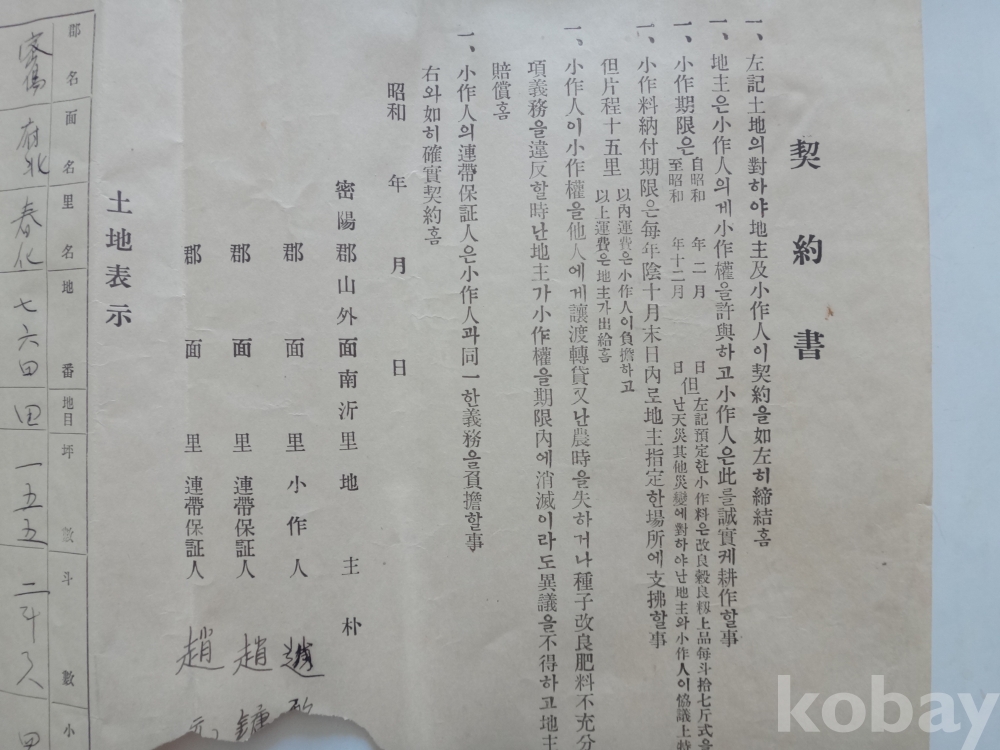 契約書
一、左記土地의對하야地主及小作人이契約을如左히締結홈
一、地主은小作人의게小作權을許與하고小作人은此를誠實케耕作할事
一、小作期限은 自昭和 年二月 日
至昭和 年十二月 日
但 左記預定한小作料은改良穀良籾上品每斗拾七斤式을
난天災其他災變에對하야난地主와小作人이協議上特
一、小作料納付期限은每年陰十月末日內로地主指定한場所에支拂할事
但片程十五里 以內運費은小作人이負擔하고
以上運費은地主가出給홈
一、小作人이小作權을他人에게讓渡轉貸又난農時을失하거나種子改良肥料不充分
項義務을違反할時난地主가小作權을期限內에消滅이라도異議을不得하고地主
賠償홈
一、小作人의連帶保証人은小作人과同一한義務을負擔할事
右와如히確實契約홈
昭和 年 月 日
密陽郡山外面南沂里地主 朴
郡 面 里小作人 趙
郡 面 里連帶保証人 趙鏞
郡 面 里連帶保証人 趙
土地表示
郡名 面名 里名 地番 地目 坪數 斗數 小
密陽 府北 春化 七六四 田 一五五 二斗